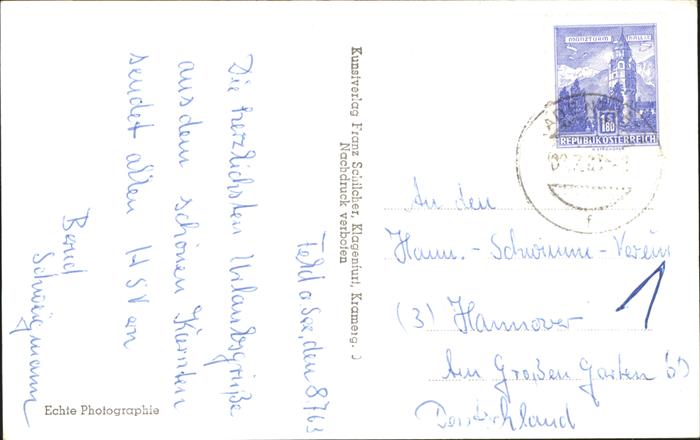 Feld a See, den 8 7 63
Die herzlichsten Urlaubsgrüße
aus dem schönen Kärnten
sendet allen HSVern
Bernd
Echte Photographie
Kunstverlag Franz Schilcher, Klagenfurt, Kramerg.
Nachdruck verboten
MÜNZTURM HALL i. T.
1.80
REPUBLIK ÖSTERREICH
f
An den
Hann. - Schwimm - Verein
(3) Hannover
Am Großen Garten
Deutschland